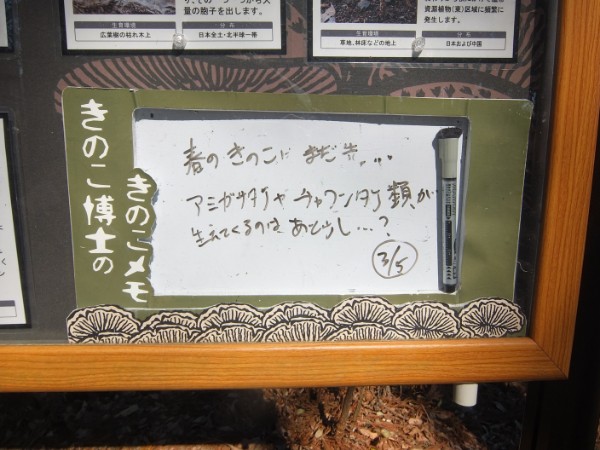 り、その一つ一つから大
量の胞子を出します。
生育環境
分布
広葉樹の枯れ木上
日本全土・北半球一帯
資源植物(東)区域に頻繁に
発生します。
生育環境
分布
草地、林床などの地上
日本および中国
きのこ博士の
きのこメモ
春のきのこは まだ先…
アミガサタケや チャワンタケ類が…
生えてくるのは あと少し…?
3/5